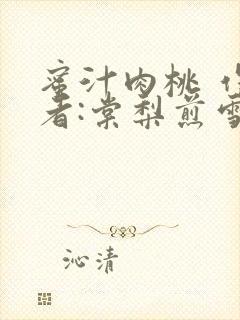 蜜汁肉桃
者:棠梨煎
沁清